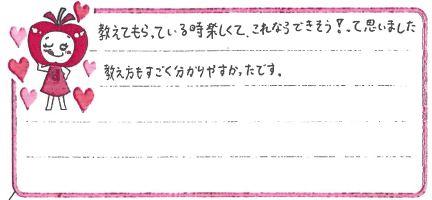 教えてもらっている時楽しくて、これならできそう!って思いました
教え方もすごく分かりやすかったです。